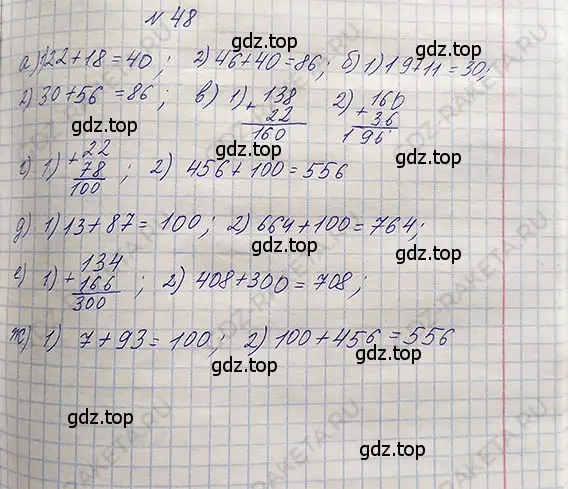 № 48
а) 1) 22 + 18 = 40; 2) 46 + 40 = 86; б) 1) 19 + 11 = 30;
2) 30 + 56 = 86; в) 1) + 138 2) + 160
22 36
160 196
г) 1) + 22 ; 2) 456 + 100 = 556
78
100
д) 1) 13 + 87 = 100; 2) 664 + 100 = 764;
е) 1) + 134 ; 2) 408 + 300 = 708;
166
300
ж) 1) 7 + 93 = 100; 2) 100 + 456 = 556
gdz.top
gdz.top
gdz.top
gdz.top
gdz.top
gdz.top
gdz.top
gdz.top
gdz.top
gdz.top
gdz.top
gdz.top
GDZ-RAKETA.RU
GDZ-RAKETA.RU
GDZ-RAKETA.RU